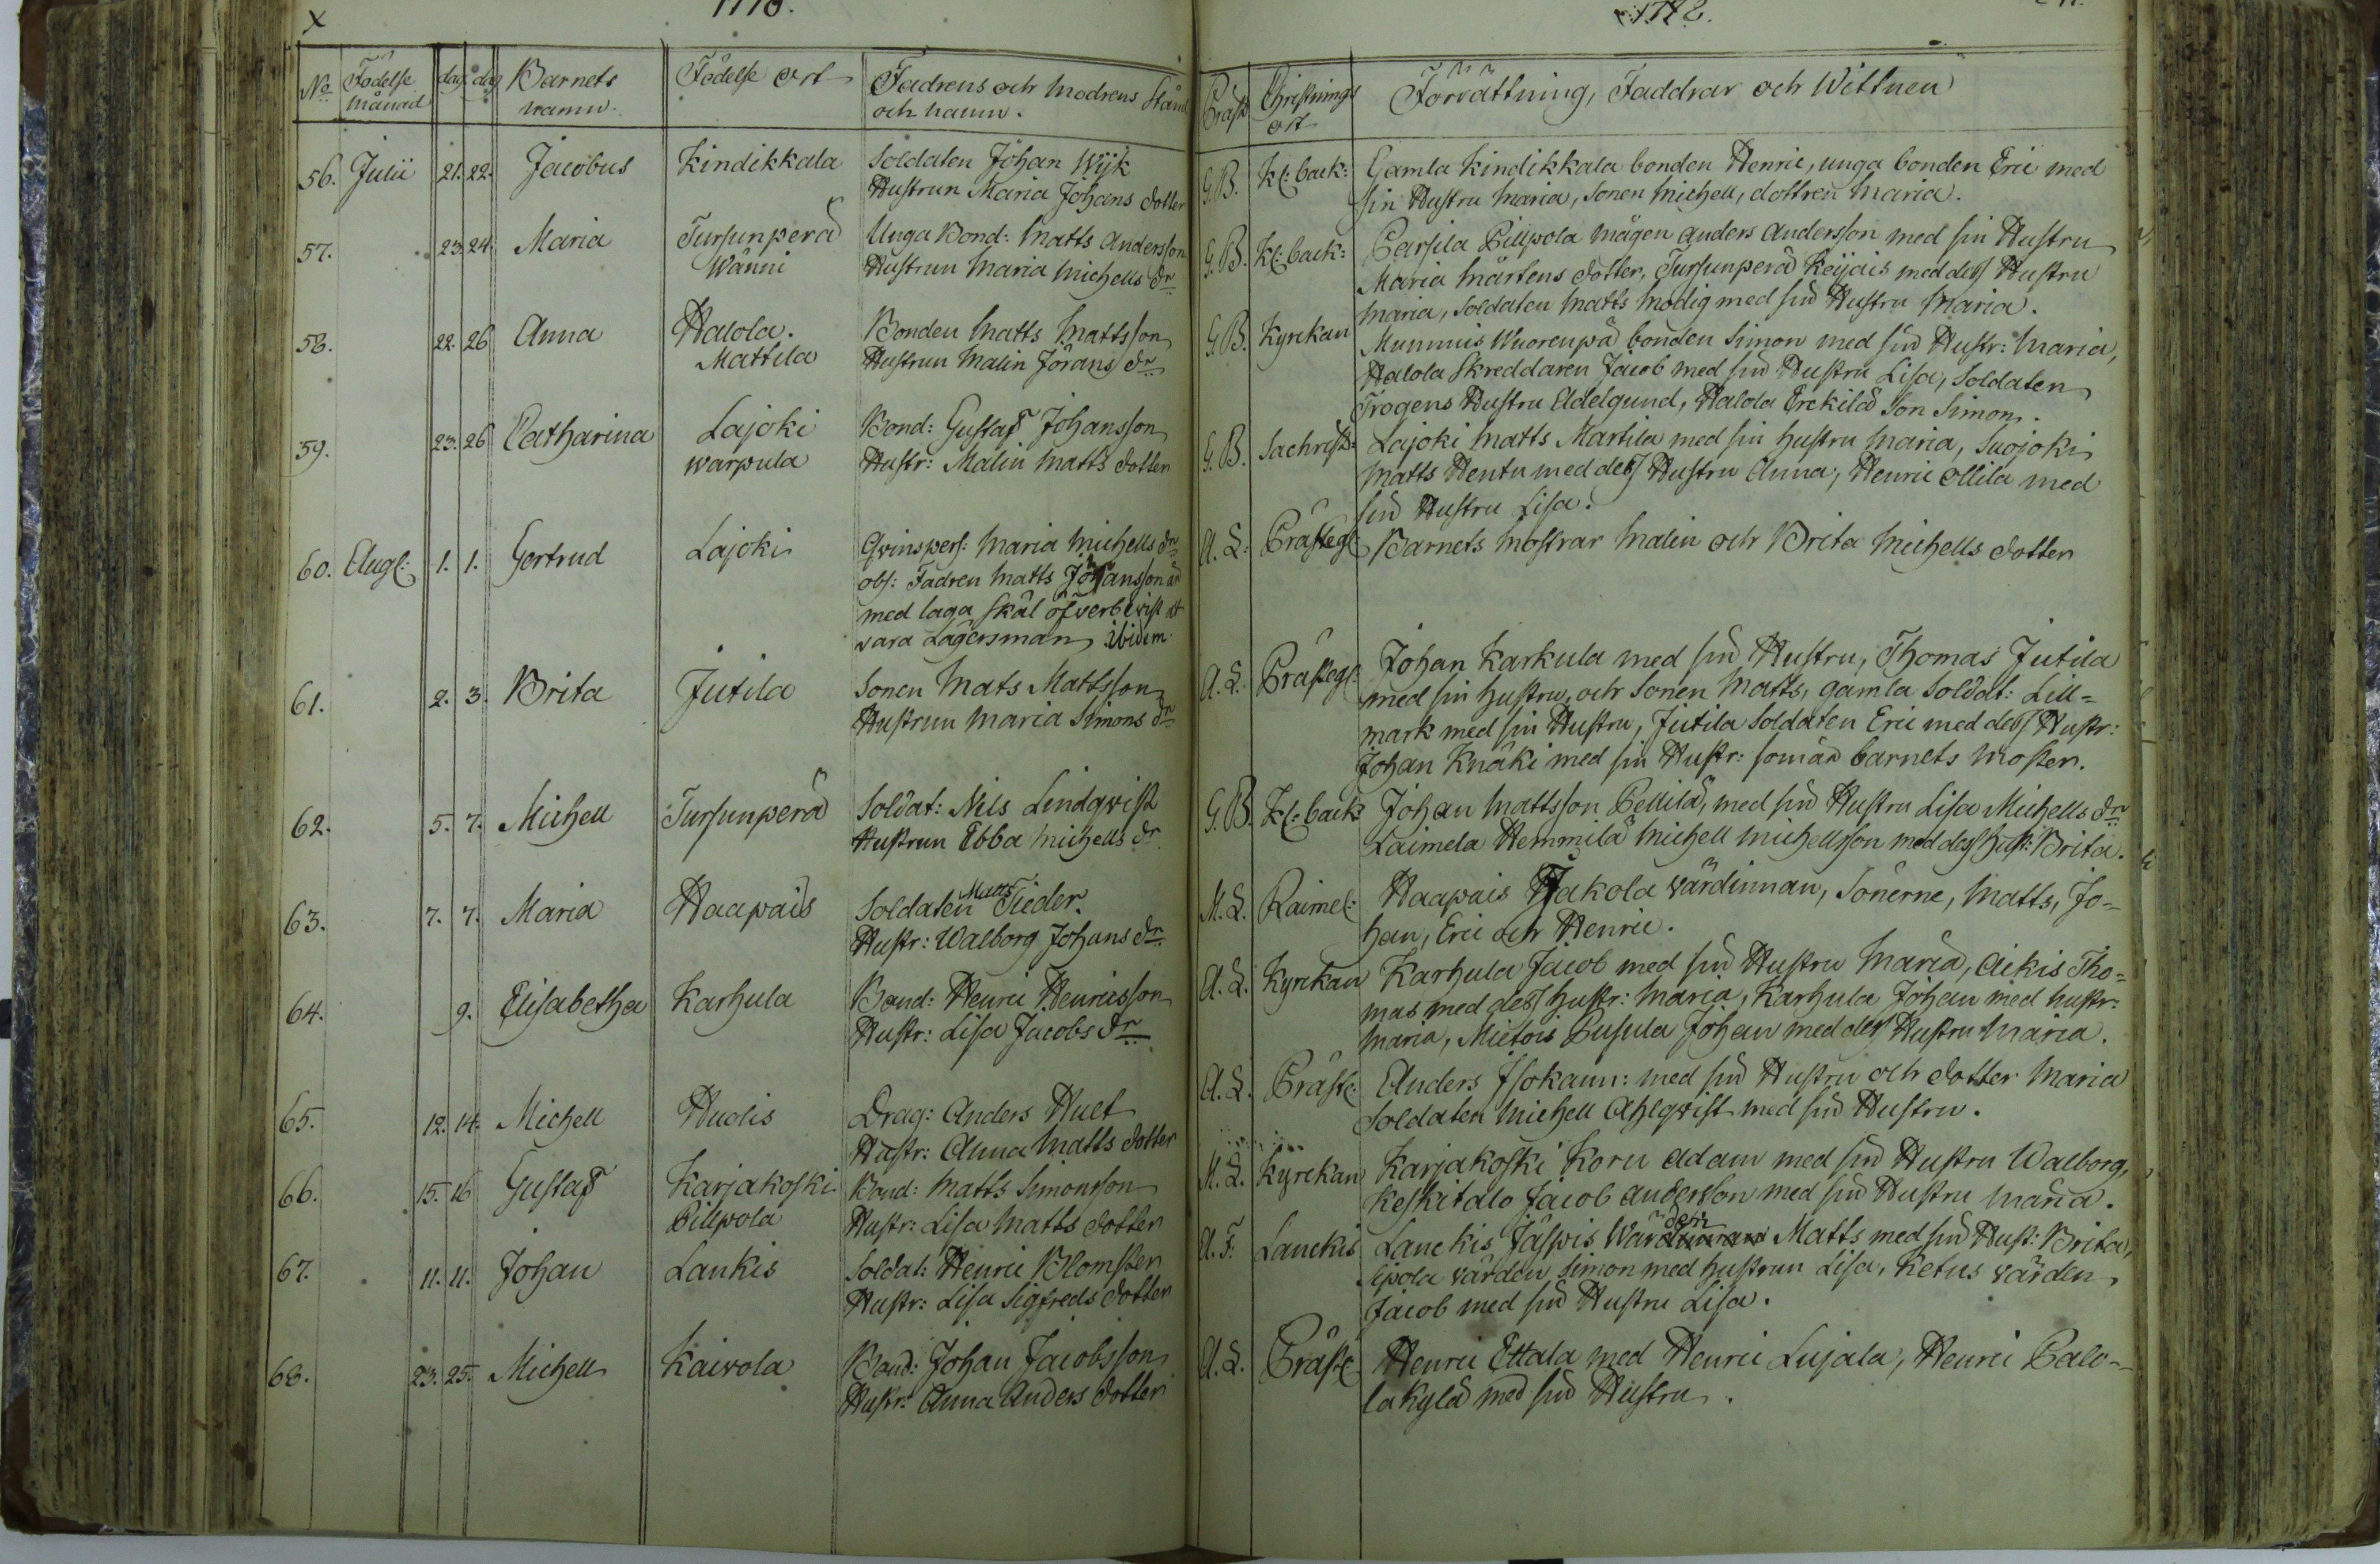 x
1778.
1778.
No Födelse månad dag dag Barnets namn. Födelse ort Fadrens och modrens stånd och namn. Präst Christnings ort Förrättning, Faddrar och Wittnen
56. Julii 21. 22. Jacobus Kindikkala Soldaten Johan Wijk G.B. Kl: back: Gamla Kindikkala bonden Henric, unga bonden Eric med
Hustrun Maria Johans dotter sin Hustru Maria, sonen Michell, dottren Maria.
57. 23. 24. Maria Tursunperä Unga Bond: Matts Andersson G.B. Kl: back: Parsila Pillpola mågen Anders Andersson med sin Hustru
Wänni Hustrun Maria Michells dr Maria Mårtens dotter, Tursunperä Keijais med dess Hustru
Maria, Soldaten Matts Modig med sin Hustru Maria.
58. 22. 26 Anna Halola. Bonden Matts Mattsson G.B. Kyrckan Mummis Wuorenpä bonden Simon med sin Hustr: Maria,
Mattila Hustrun Malin Jörans dr Halola Skreddaren Jacob med sin Hustru Lisa, Soldaten
Trogens Hustru Adelgund, Halola Erckilä son Simon.
59. 23. 26 Catharina Lajoki Bond: Gustaf Johansson G.B. Sachrist: Lajoki Matts Martila med sin hustru Maria, Suojoki
warpula Hustr: Malin Matts dotter Matts Hentu med dess Hustru Anna, Henric Ollila med
sin Hustru Lisa.
60. Aug: 1. 1. Gertrud Lajoki Qvinspers: Maria Michells dr A.L. Prästeg: Barnets mostrar Malin och Brita Michells dotter
obs: Fadren Matts Johansson är
med laga skäl öfverbevist at
vara Lägersman ibidem.
61. 2. 3. Brita Jutila Sonen Mats Mattsson A.L. Prästeg: Johan Karkula med sin Hustru, Thomas Jutila
Hustrun Maria Simons dr med sin hustru, och sonen Matts, gamla Soldat: Lill=
mark med sin Hustru, Jutila Soldaten Eric med dess Hustr:
Johan Knäki med sin Hustr: som är barnets moster.
62. 5. 7. Michell Tursunperä Soldat: Nils Lindqvist G.B. Kl: back: Johan Mattsson Pellilä, med sin Hustru Lisa Michells dr
Hustrun Ebba Michells dr Laimela Hemmilä Michell Michellsson med dess Hust: Brita.
63. 7. 7. Maria Haapais Soldaten Matts Tieder. M.L. Raimel: Haapais Jakola värdinnan, Sönerne, Matts, Jo=
Hustr: Walborg Johans dr han, Eric och Henric.
64. 9. Elisabetha Karhula Bond: Henric Henricsson A.L. Kyrckan Karhula Jacob med sin Hustru Maria, Aikis Tho=
Hustr: Lisa Jacobs dr mas med dess hustr: Maria, Karhula Johan med hustr:
Maria, Mietois Pusula Johan med dess Hustru Maria.
65. 12. 14. Michell Huolis Drag: Anders Huet A.L. Präst: Anders Isokaun: med sin Hustru och dotter Maria
Hustr: Anna Matts dotter Soldaten Michell Ahlqvist med sin Hustru.
66. 15. 16 Gustaf Karjakoski Bond: Matts Simonsson M.L. Kyrckan Karjakoski Koru Adam med sin Hustru Walborg,
Pillpola Hustr: Lisa Matts dotter Keskitalo Jacob Andersson med sin Hustru Maria.
67. 11. 11. Johan Lankis Soldat: Henric Blomster A.F. Lanckis Lanckis Jäspis Wärden Matts med sin Hust: Brita,
Hustr: Lisa Sigfreds dotter Sipola värden Simon med hustrun Lisa, Ketus värden
Jacob med sin Hustru Lisa.
68. 23. 25. Michell Kaivola Bond: Johan Jacobsson A.L. Präst: Henric Ettala med Henric Lujala, Henric Palo=
Hustr: Anna Anders dotter lakylä med sin Hustru.